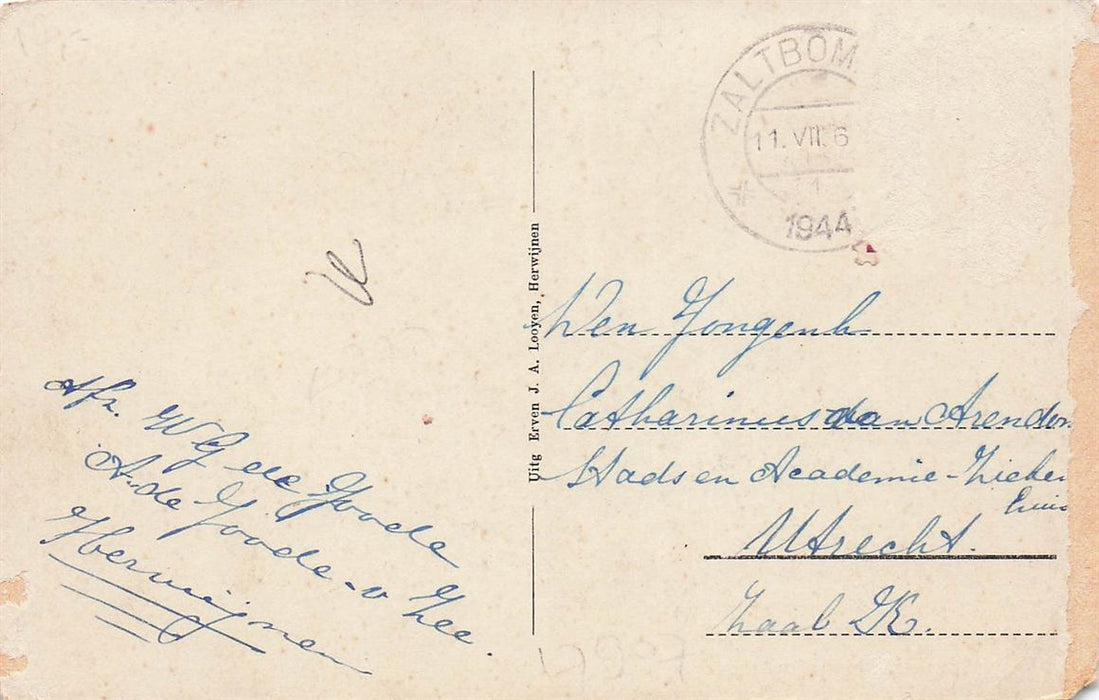 ZALTBOM
11. VII. 6
1944
Uitg Erven J. A. Looyen, Herwijnen
Afz. W G de Goode
A. de Goode - v Zee.
Herwijnen
Den Jongenh
Catharinus van Arendon
Stads en Academie - Zieken
huis
Utrecht.
Zaal IK.